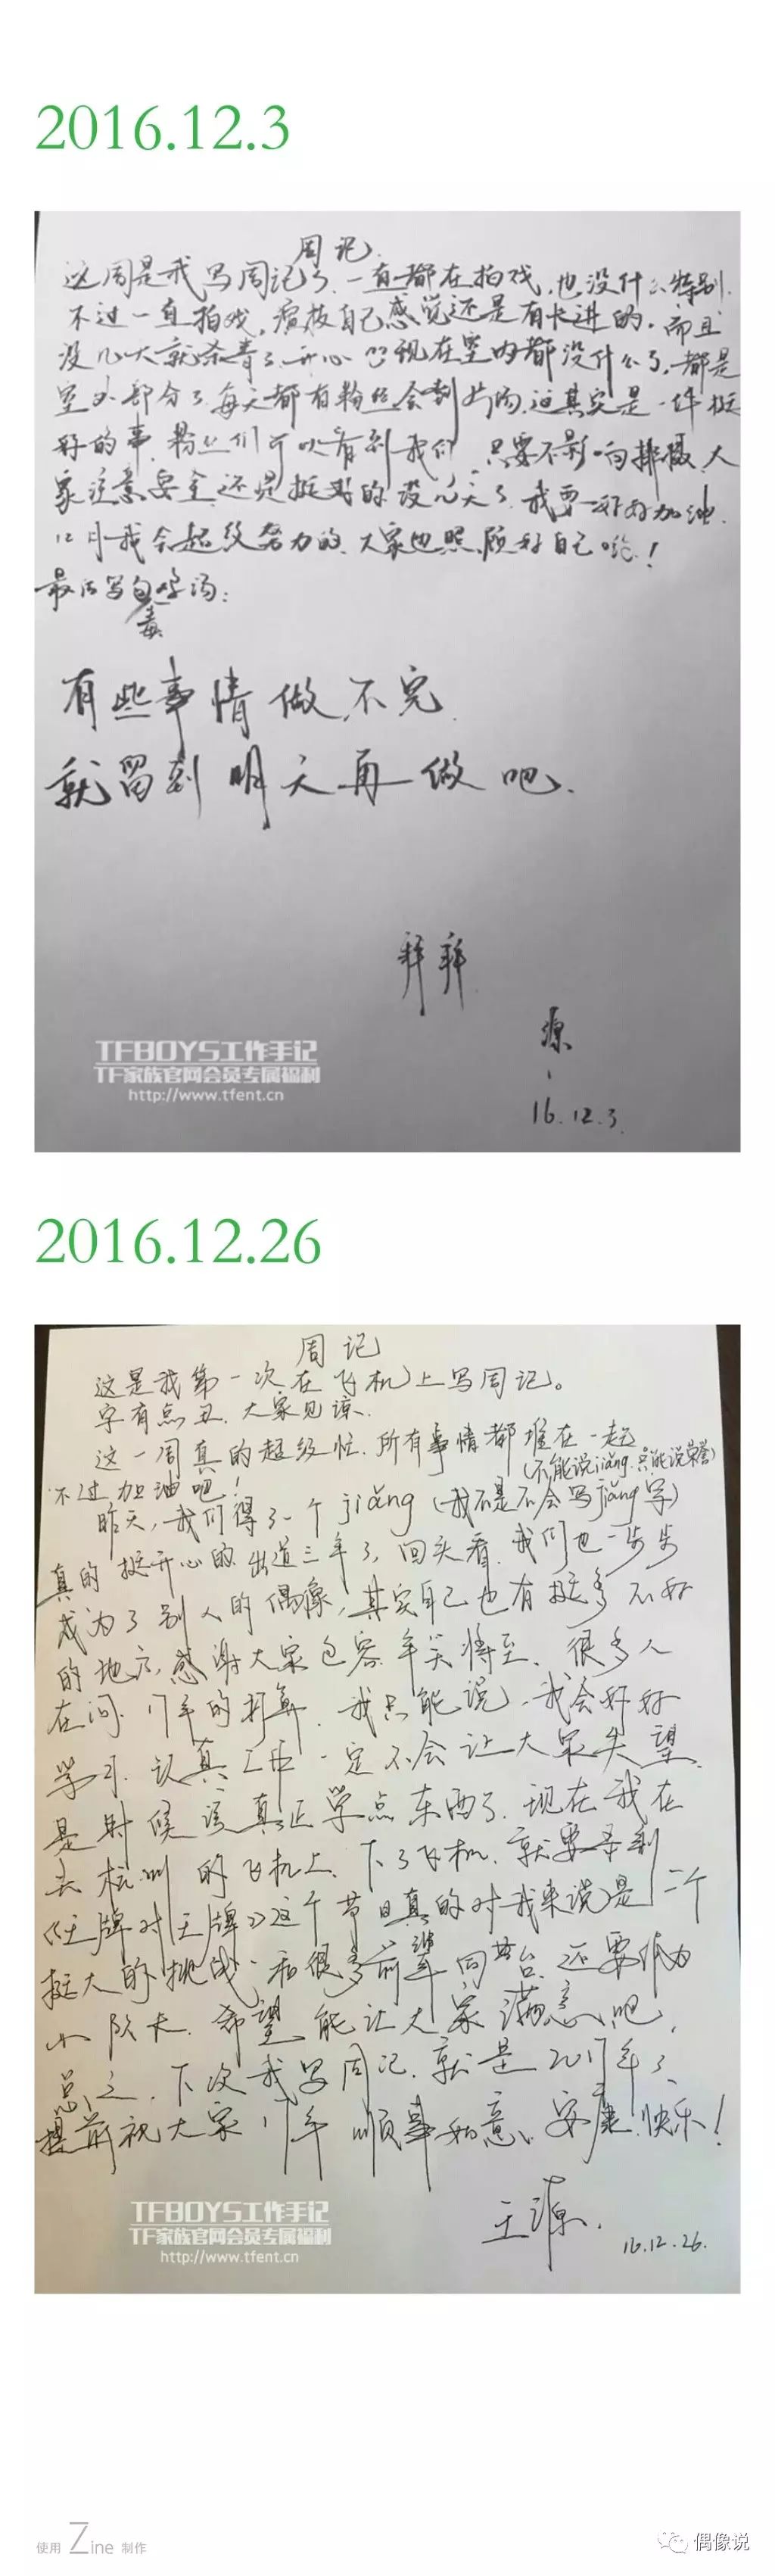 2016.12.3
周记
这周是我写周记了.一直都在拍戏,也没什么特别.
不过一直拍戏,演技自己感觉还是有长进的.而且
没几天就杀青了.开心 现在室内都没什么了,都是
室外部分了.每天都有粉丝会到片场,这其实是一件挺
好的事.粉丝们可以看到我们.只要不影响拍摄,大
家注意安全.还是挺好的.没几天了.我要一样好加油.
12月我会超级努力的.大家也照顾好自己哟!
最后写句鸡汤:
毒
有些事情做不完.
就留到明天再做吧.
拜拜
源
16.12.3.
TFBOYS工作手记
TF家族官网会员专属福利
http://www.tfent.cn
2016.12.26
周记
这是我第一次在飞机上写周记。
字有点丑.大家见谅.
这一周真的超级忙.所有事情都堆在一起
不过加油吧! (不能说jiǎng.只能说荣誉)
昨天,我们得了一个jiǎng(我不是不会写jiǎng字)
真的挺开心的.出道三年了,回头看.我们也一步步
成为了别人的偶像,其实自己也有挺多不好
的地方,感谢大家包容.年关将至.很多人
在问.17年的打算.我只能说,我会好好
学习.认真工作.一定不会让大家失望.
是时候该真正学点东西了.现在我在
去杭州的飞机上.下了飞机.就要录制
《王牌对王牌》这个节目真的对我来说是一个
挺大的挑战.和很多前辈同台.还要作为
小队长.希望能让大家满意吧.
总之.下次我写周记.就是2017年了.
提前祝大家17年顺事如意、安康.快乐!
王源.
16.12.26.
TFBOYS工作手记
TF家族官网会员专属福利
http://www.tfent.cn
使用 Zine 制作
偶像说